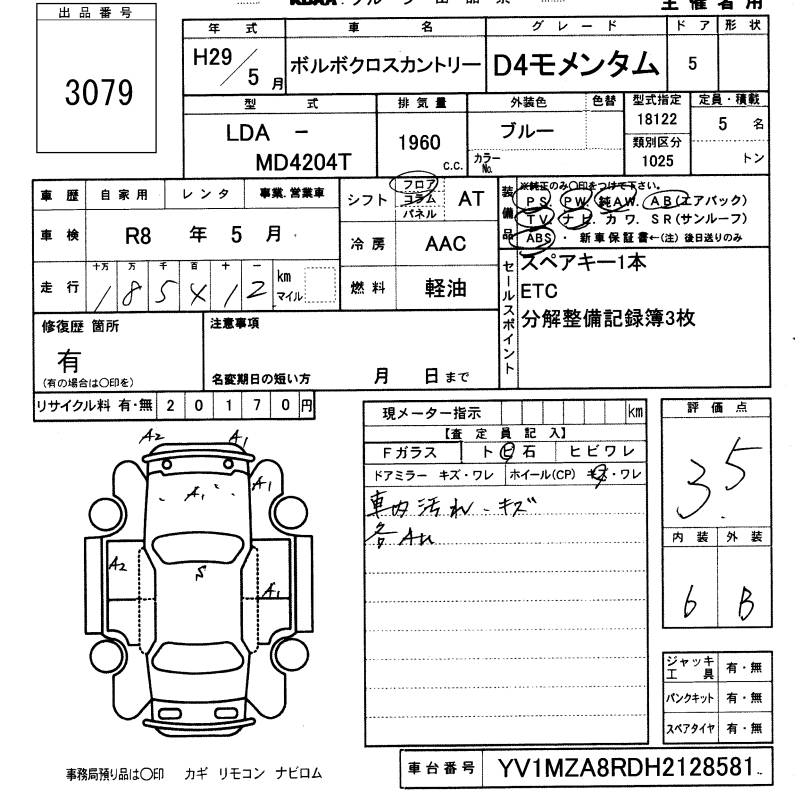 主催者用
出品番号
3079
年 式 車 名 グレード ドア 形状
H29/5月 ボルボクロスカントリー D4モメンタム 5
型 式 排気量 外装色 色替 型式指定 定員・積載
LDA － MD4204T 1960 c.c. ブルー カラーNo. 18122 5 名
類別区分
1025 トン
車歴 自家用 レンタ 事業.営業車
車検 R8 年 5 月
走行 十万 万 千 百 十 一
1 8 5 4 1 2 km マイル
シフト フロア コラム パネル AT
冷房 AAC
燃料 軽油
装備品
※純正のみ〇印をつけて下さい。
PS. PW. 純AW. AB(エアバック)
TV. ナビ. カワ. SR(サンルーフ)
ABS・ 新車保証書←(注)後日送りのみ
セールスポイント
スペアキー1本
ETC
分解整備記録簿3枚
修復歴 箇所
有
(有の場合は〇印を)
注意事項
名変期日の短い方 月 日まで
リサイクル料 有・無 20170円
現メーター指示 km
【査定員記入】
Fガラス ト ビ 石 ヒビワレ
ドアミラー キズ・ワレ ホイール(CP) キズ・ワレ
車内汚れ・キズ
評価点
3.5
内装 外装
6 B
A2 A1
A1 A1
A2
S
A1
ジャッキ工具 有・無
パンクキット 有・無
スペアタイヤ 有・無
車台番号 YV1MZA8RDH2128581
事務局預り品は〇印 カギ リモコン ナビロム